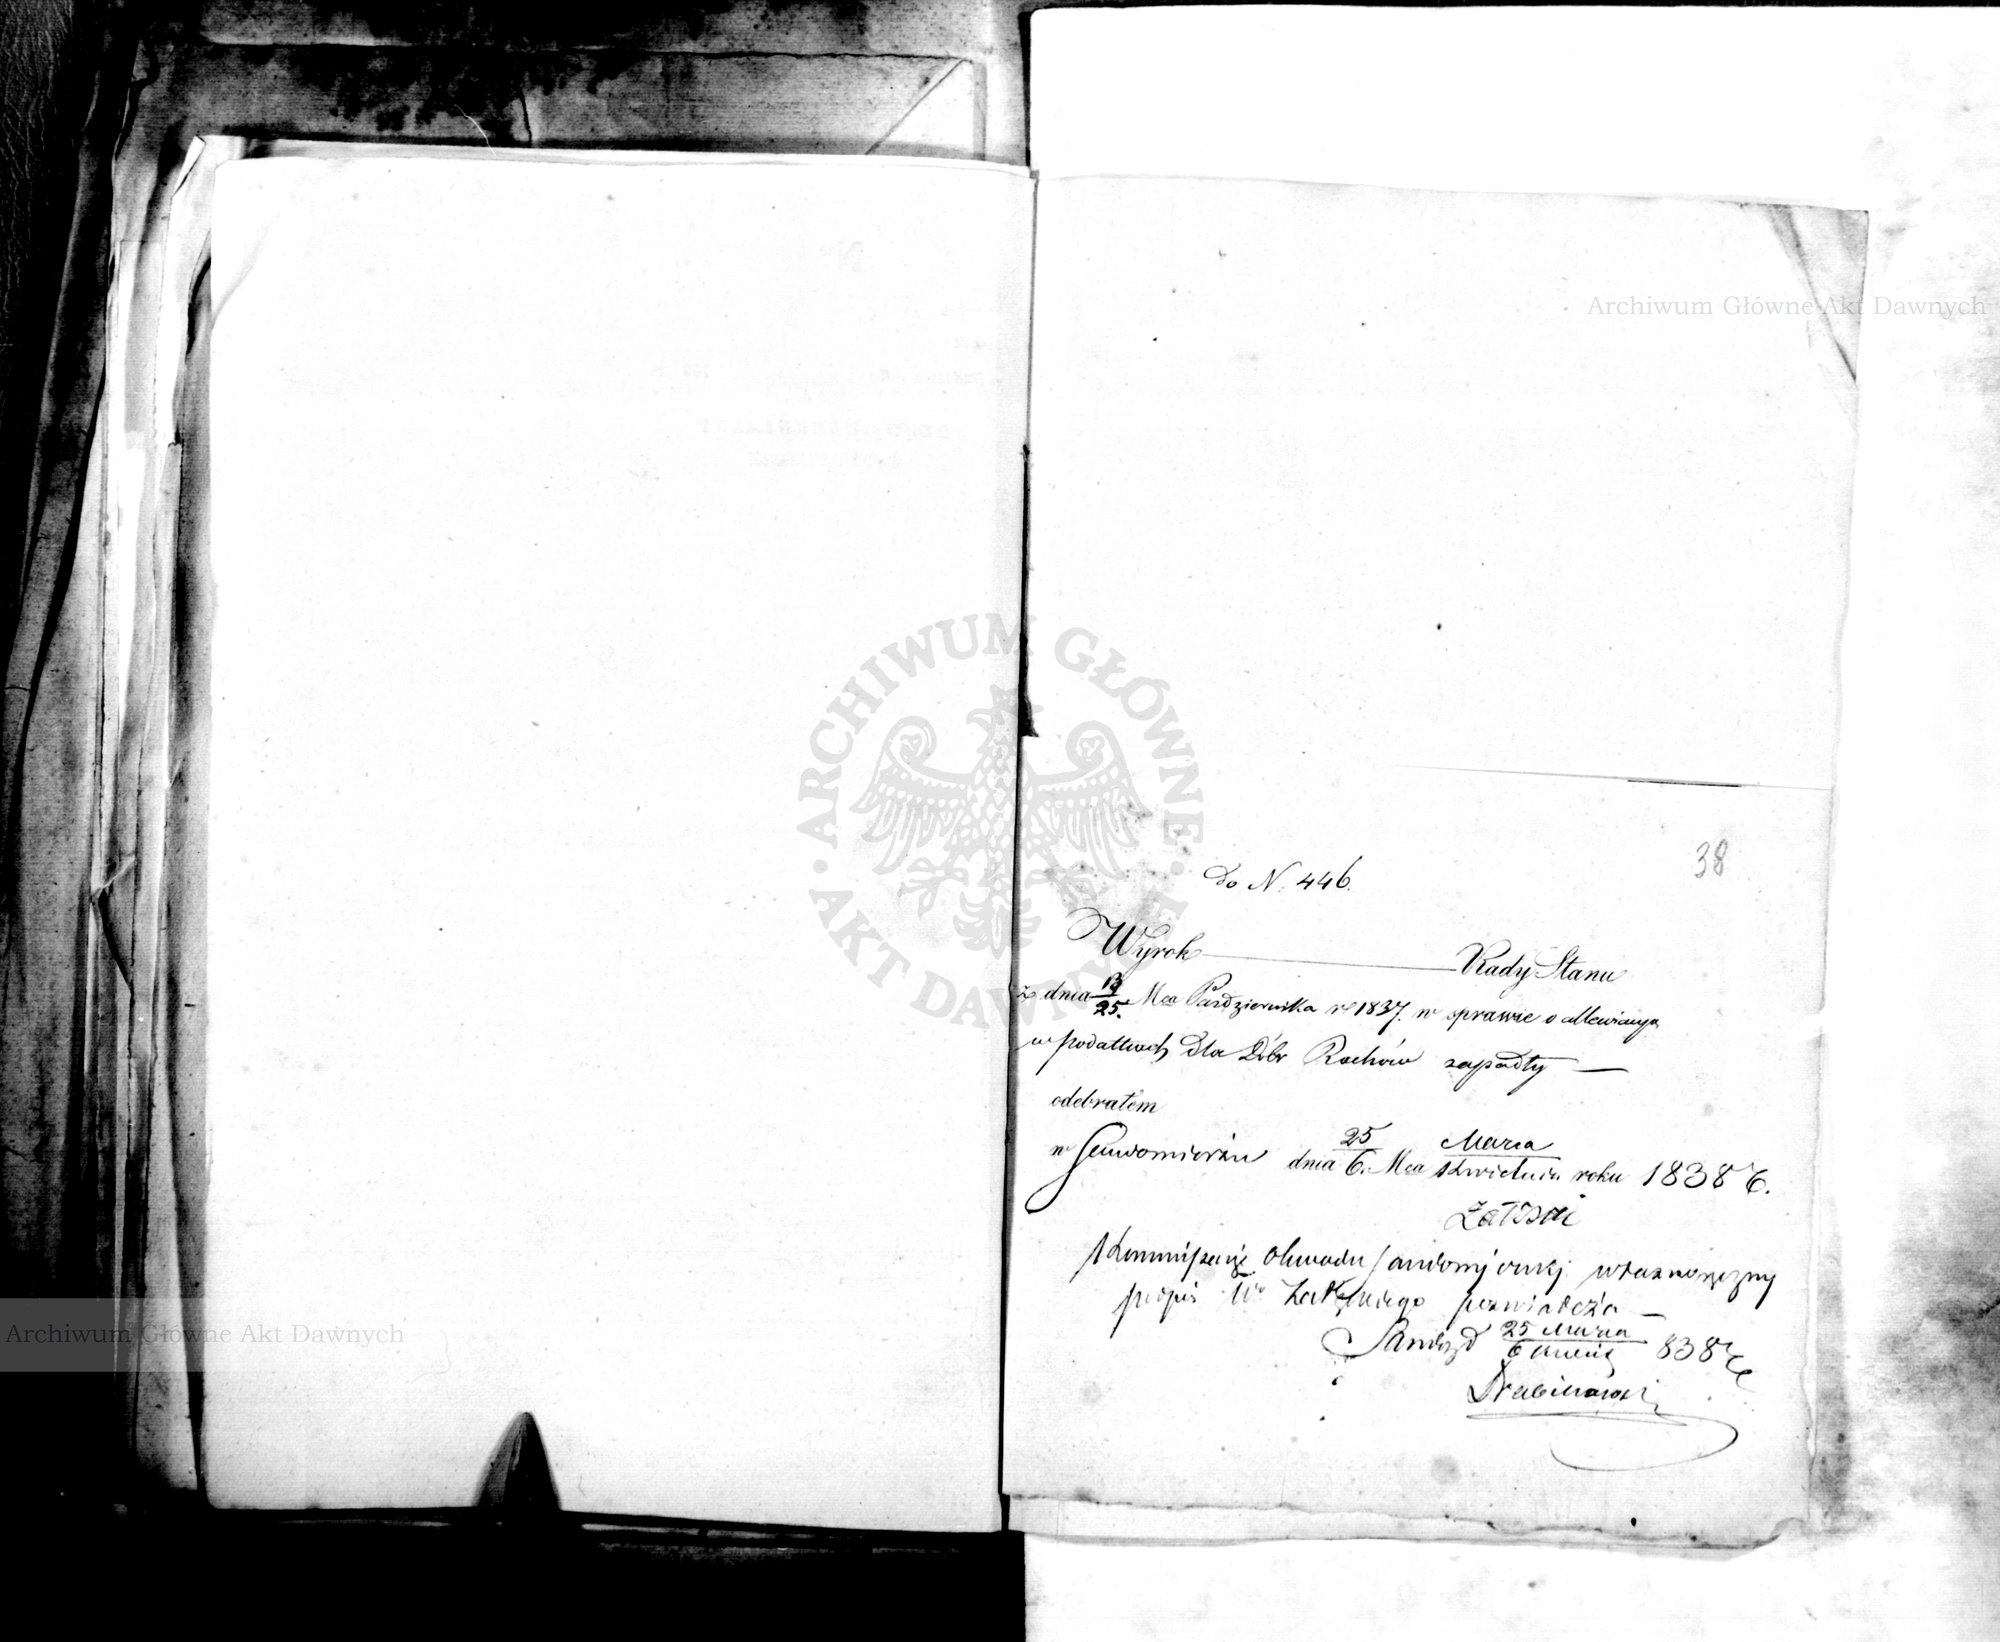 Archiwum Główne Akt Dawnych
ARCHIWUM GŁÓWNE AKT DAWNYCH
38
do N. 446.
Wyrok Rady Stanu
z dnia 13/25. Mca Października r 1837. w sprawie o
w podatkach dla Dóbr Rachów zapadły
odebrałem
w Sandomierzu dnia 25/6. Mca Marca/Kwietnia roku 1838 r.
Załuski
Kommissarz Obwodu Sandomierskiej własnoręczny
podpis Wo poswiadcza
Sandrz d 25 Marca/6 838 r
Archiwum Główne Akt Dawnych